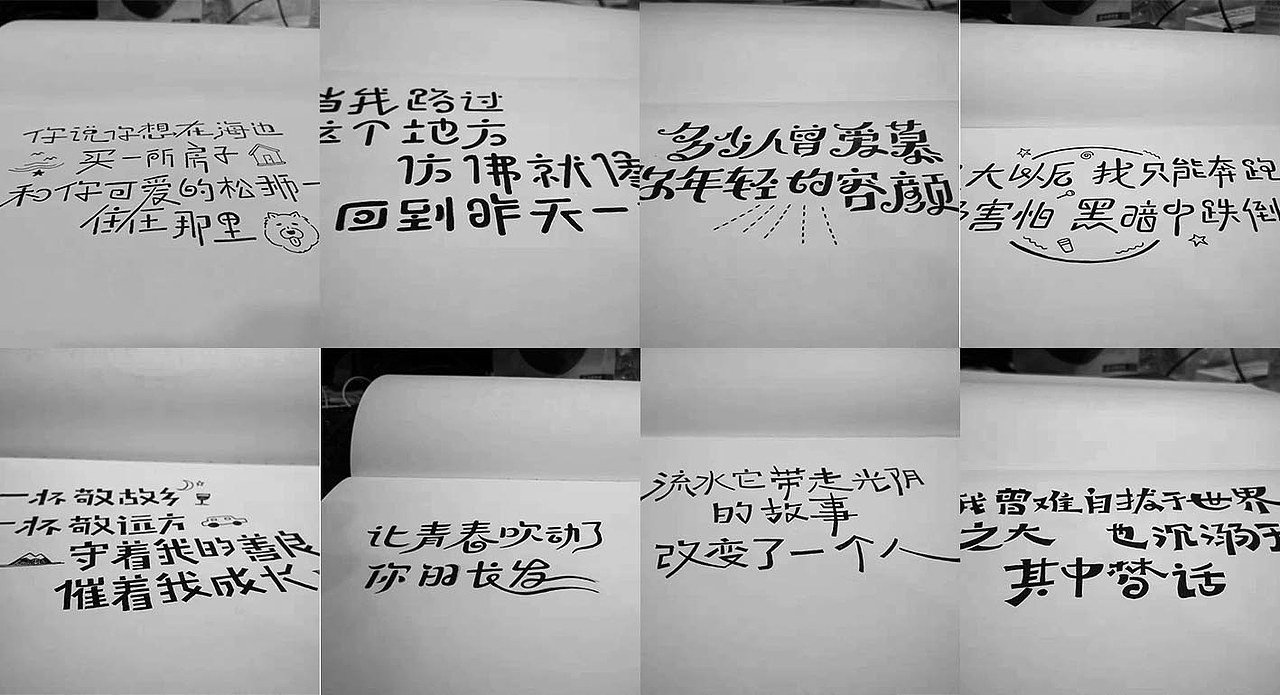 你说你想在海边
买一所房子
和你可爱的松狮一
住在那里
当我路过
这个地方
仿佛就像
回到昨天一
多少人曾爱慕
你年轻的容颜
大以后 我只能奔跑
害怕 黑暗中跌倒
一杯敬故乡
一杯敬远方
守着我的善良
催着我成长
让青春吹动了
你的长发
流水它带走光阴
的故事
改变了一个人
我曾难自拔于世界
之大 也沉溺于
其中梦话